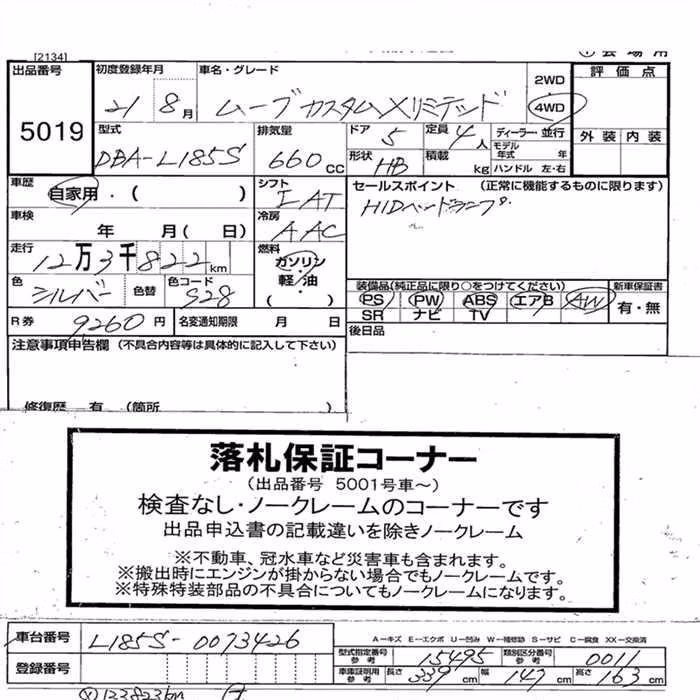 [2134]
出品番号 5019
初度登録年月 21 8月
車名・グレード ムーブカスタムXリミテッド
2WD 4WD
評価点
外装 内装
型式 DBA-L185S
排気量 660 cc
ドア 5 定員 4人
形状 HB 積載 kg
ディーラー・並行
モデル年式 年
ハンドル 左・右
車歴 自家用・( )
シフト FAT
セールスポイント (正常に機能するものに限ります)
HIDヘッドランプ
車検 年 月(日)
冷房 AAC
走行 12万3千822km
燃料 ガソリン・軽油・( )
色 シルバー 色替 色コード S28
装備品(純正品に限り○をつけてください)
PS PW ABS エアB AW
SR ナビ TV
新車保証書 有・無
R券 9260円 名変通知期限 月 日
後日品
注意事項申告欄 (不具合内容等は具体的に記入して下さい)
修復歴 有 (箇所 )
落札保証コーナー
(出品番号 5001号車～)
検査なし・ノークレームのコーナーです
出品申込書の記載違いを除きノークレーム
※不動車、冠水車など災害車も含まれます。
※搬出時にエンジンが掛からない場合でもノークレームです。
※特殊特装部品の不具合についてもノークレームになります。
車台番号 L185S-0073426
A－キズ E－エクボ U－凹み W－補修跡 S－サビ C－腐食 XX－交換済
型式指定番号 参考 15495 類別区分番号 参考 0011
登録番号
車庫証明用 参考 長さ 339cm 幅 147cm 高さ 163cm
123823km